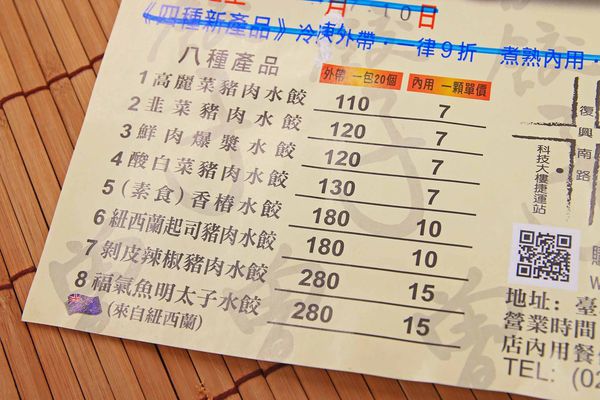 月 10日
《四種新產品》冷凍外帶：一律9折 煮熟內用
八種產品 外帶 一包20個 內用 一顆單價
1 高麗菜豬肉水餃 110 7
2 韭菜豬肉水餃 120 7
3 鮮肉爆漿水餃 120 7
4 酸白菜豬肉水餃 130 7
5 (素食)香椿水餃 180 10
6 紐西蘭起司豬肉水餃 180 10
7 剝皮辣椒豬肉水餃 280 15
8 福氣魚明太子水餃 280 15
(來自紐西蘭)
復興南路
科技大樓捷運站
地址: 臺
營業時間
店內用餐
TEL: (02